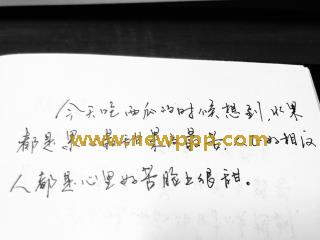 今天吃西瓜的时候想到,水果
都是果
www.newppp.com
的相反
人都是心里好苦脸上很甜。